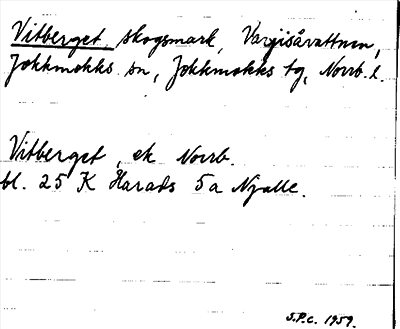 Vitberget, skogsmark, Vargisåvattnen,
Jokkmokks sn, Jokkmokks tg, Norrb. l.
Vitberget, ek Norrb.
bl. 25 K Harads 5a Njalle.
S.P.C. 1959.